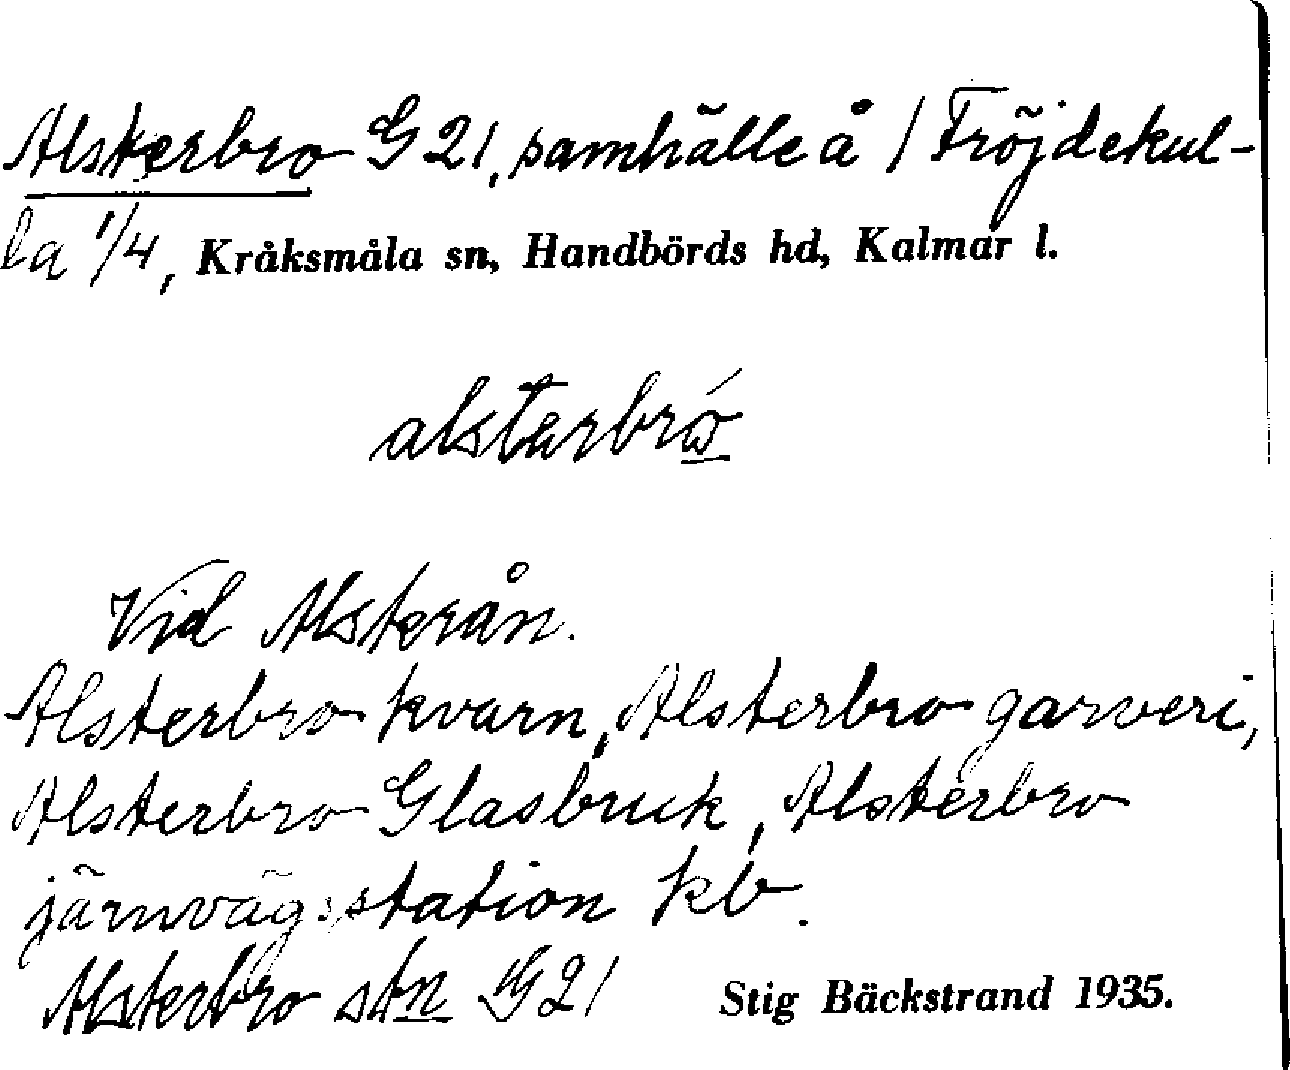 Alsterbro G 21, samhälle å 1 Fröjdekul-
la 1/4, Kråksmåla sn, Handbörds hd, Kalmar l.
alstərbró
Vid Alsterån.
Alsterbro kvarn, Alsterbro garveri,
Alsterbro Glasbruk, Alsterbro
järnvägsstation kb.
Alsterbro stn G 21 Stig Bäckstrand 1935.